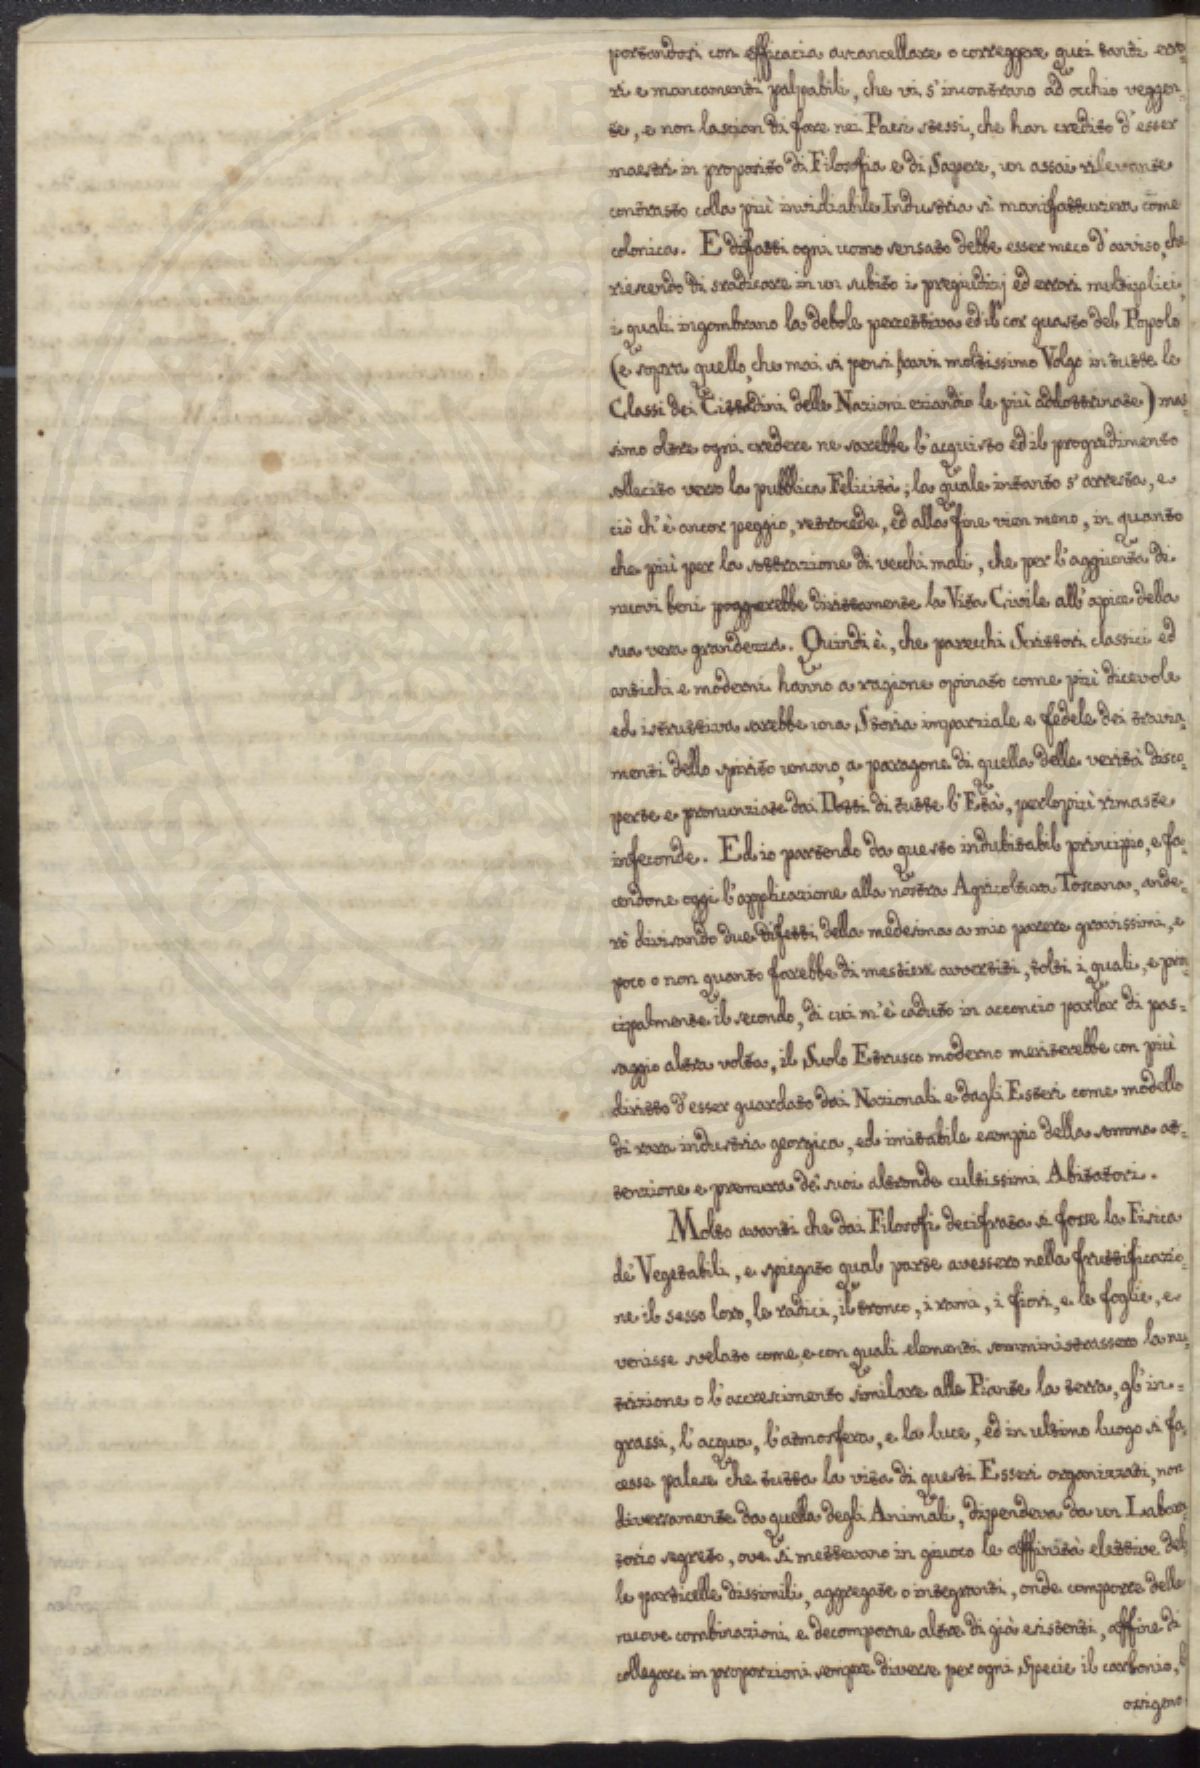 portandosi con efficacia a rcancellare o correggere quei tanti erro-
ri e mancamenti palpabili, che vi s'incontrano ad occhio veggen-
te, e non lascian di fare nei Paesi stessi, che han credito d'esser
maestri in proposito di Filosofia e di Sapere, un assai rilevante
contrasto colla più invidiabile Industria sì manifatturiera come
colonica. E difatti ogni uomo sensato debbe esser meco d'avviso, che
riescendo di sradicare in un subito i pregiudizj ed errori multiplici,
i quali ingombrano la debole percettiva ed il cor guasto del Popolo
(e sopra quello, che mai si pensi, havvi moltissimo Volgo in tutte le
Classi dei Cittadini delle Nazioni eziandio le più addottrinate) mas-
simo oltre ogni credere ne sarebbe l'acquisto ed il progredimento
sollecito verso la pubblica Felicità; la quale intanto s'arresta, e
ciò ch'è ancor peggio, retrocede, ed alla fine vien meno, in quanto
che più per la sottrazione di vecchi mali, che per l'aggiunta di
nuovi beni poggerebbe dirittamente la Vita Civile all'apice della
sua vera grandezza. Quindi è, che parecchi Scrittori classici ed
antichi e moderni hanno a ragione opinato come più dicevole
ed istruttiva sarebbe una Storia imparziale e fedele dei travia-
menti dello spirito umano, a paragone di quella delle verità disco-
perte e pronunziate dai Dotti di tutte l'Età, perlopiù rimaste
infeconde. Ed io partendo da questo indubitabil principio, e fa-
cendone oggi l'applicazione alla nostra Agricoltura Toscana, ande-
rò divisando due difetti della medesima a mio parere gravissimi, e
poco o non quanto farebbe di mestieri avvertiti, tolti i quali, e prin-
cipalmente il secondo, di cui m'è caduto in acconcio parlar di pas-
saggio altra volta, il Suolo Etrusco moderno meriterebbe con più
diritto d'esser guardato dai Nazionali e dagli Esteri come modello
di rara industria georgica, ed imitabile esempio della somma at-
tenzione e premura de' suoi altronde cultissimi Abitatori.
Molto avanti che dai Filosofi decifrata si fosse la Fisica
de' Vegetabili, e spiegato qual parte avessero nella fruttificazio-
ne il sesso loro, le radici, il tronco, i rami, i fiori, e le foglie, e
venisse svelato come, e con quali elementi somministrassero la nu-
trizione o l'accrescimento similare alle Piante la terra, gl'in-
grassi, l'acqua, l'atmosfera, e la luce, ed in ultimo luogo si fa-
cesse palese che tutta la vita di questi Esseri organizzati, non
diversamente da quella degli Animali, dipendeva da un Labora-
torio segreto, ove si mettevano in giuoco le affinità elettive del-
le particelle dissimili, aggregate o integranti, onde comporre delle
nuove combinazioni e decomporne altre di già esistenti, affine di
collegare in proporzioni sempre diverse per ogni Specie il carbonio, l'
ossigeno